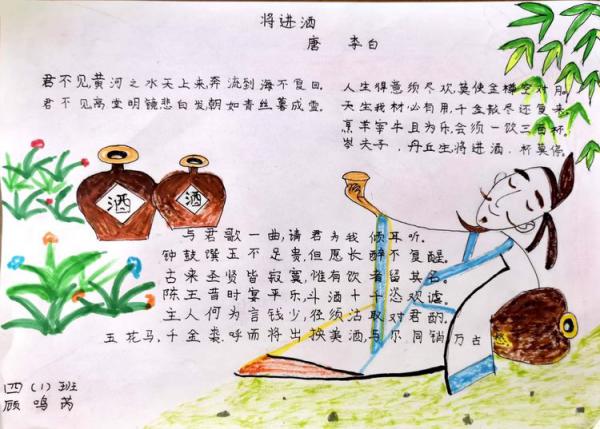 将进酒
唐 李白
君不见黄河之水天上来,奔流到海不复回。
君不见高堂明镜悲白发,朝如青丝暮成雪。
人生得意须尽欢,莫使金樽空对月。
天生我材必有用,千金散尽还复来。
烹羊宰牛且为乐,会须一饮三百杯。
岑夫子,丹丘生将进酒,杯莫停。
酒
酒
与君歌一曲,请君为我倾耳听。
钟鼓馔玉不足贵,但愿长醉不复醒。
古来圣贤皆寂寞,惟有饮者留其名。
陈王昔时宴平乐,斗酒十千恣欢谑。
主人何为言钱少,径须沽取对君酌。
五花马,千金裘,呼而将出换美酒,与尔同销万古
四(1)班
顾鸣芮